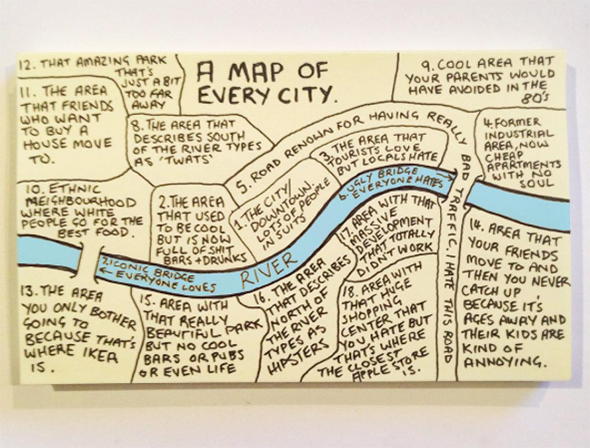 A MAP OF
EVERY CITY.
12. THAT AMAZING PARK
THAT'S
JUST A BIT
TOO FAR
AWAY
9. COOL AREA THAT
YOUR PARENTS WOULD
HAVE AVOIDED IN THE
80's
11. THE AREA
THAT FRIENDS
WHO WANT
TO BUY A
HOUSE MOVE
TO.
8. THE AREA THAT
DESCRIBES SOUTH
OF THE RIVER TYPES
AS 'TWATS'
5. ROAD RENOWN FOR HAVING REALLY BAD TRAFFIC. I HATE THIS ROAD
3. THE AREA THAT
TOURISTS LOVE
BUT LOCALS HATE
4. FORMER
INDUSTRIAL
AREA, NOW
CHEAP
APARTMENTS
WITH NO
SOUL
10. ETHNIC
NEIGHBOURHOOD
WHERE WHITE
PEOPLE GO FOR THE
BEST FOOD.
2. THE AREA
THAT USED
TO BE COOL
BUT IS NOW
FULL OF SHIT
BARS + DRUNKS
1. THE CITY/
DOWNTOWN
LOTS OF PEOPLE
IN SUITS
6. UGLY BRIDGE
EVERYONE HATES
7. ICONIC BRIDGE
EVERYONE LOVES
RIVER
17. AREA WITH THAT
MASSIVE
DEVELOPMENT
THAT TOTALLY
DIDN'T WORK
14. AREA THAT
YOUR FRIENDS
MOVE TO AND
THEN YOU NEVER
CATCH UP,
BECAUSE IT'S
AGES AWAY AND
THEIR KIDS ARE
KIND OF
ANNOYING.
13. THE AREA
YOU ONLY BOTHER
GOING TO
BECAUSE THAT'S
WHERE IKEA
IS.
15. AREA WITH
THAT REALLY
BEAUTIFUL PARK
BUT NO COOL
BARS OR PUBS
OR EVEN LIFE
16. THE AREA
THAT DESCRIBES
NORTH OF
THE RIVER
TYPES AS
HIPSTERS
18. AREA WITH
THAT HUGE
SHOPPING
CENTER THAT
YOU HATE BUT
THAT'S WHERE
THE CLOSEST
APPLE STORE
IS.